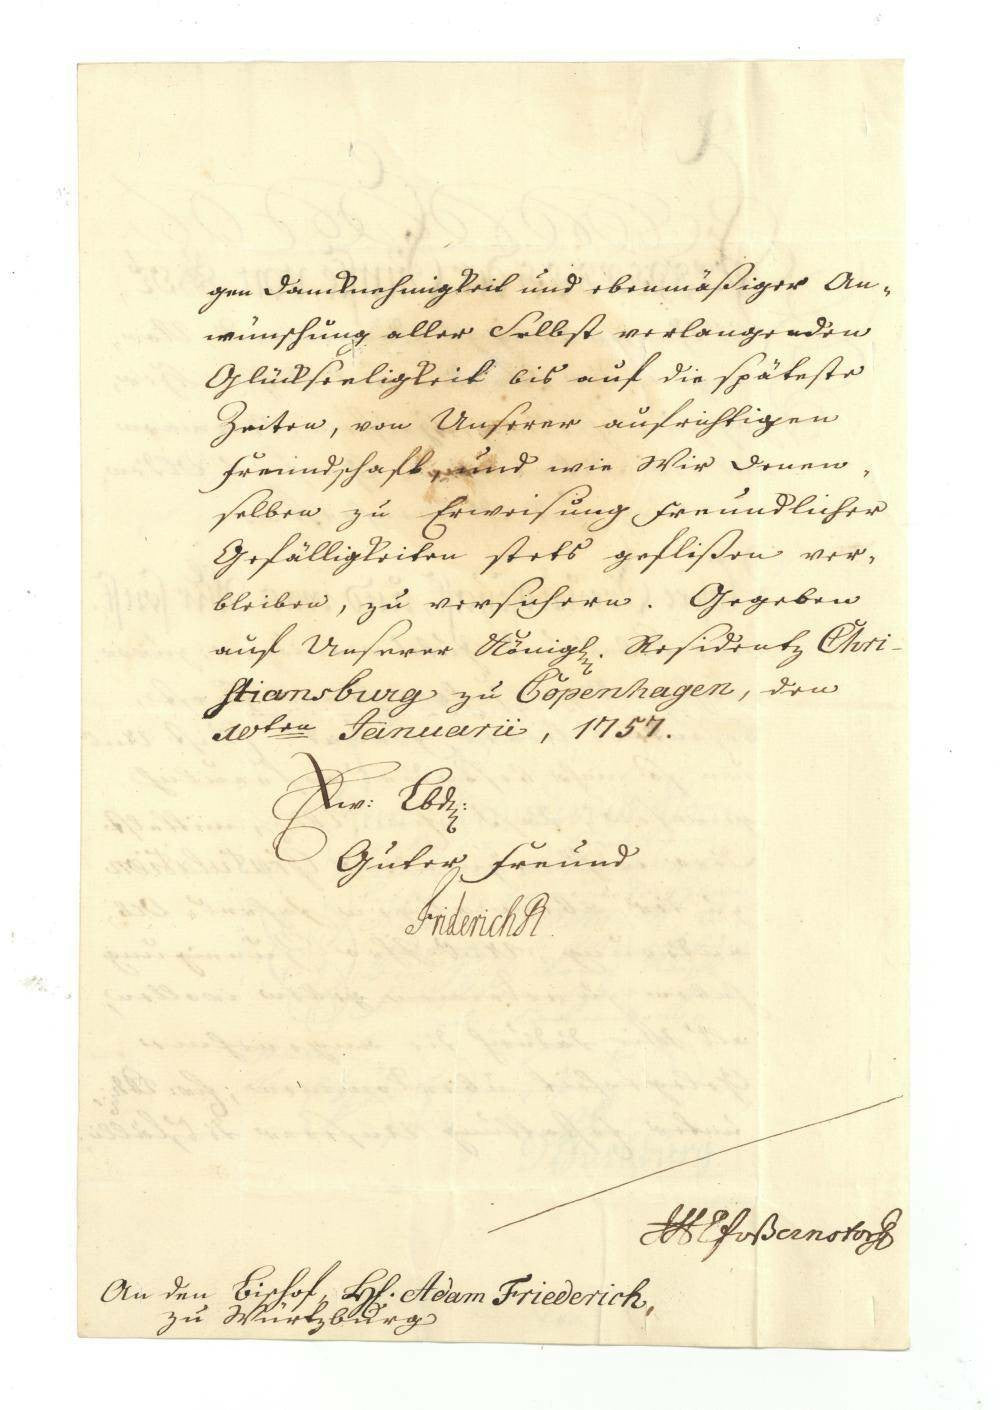 gen Dancknehmigkeit und ebenmäßiger An-
wünschung aller Selbst verlangenden
Glückseeligkeit bis auf die späteste
Zeiten, von Unserer aufrichtigen
Freundschafft, und wie Wir Denen-
selben zu Erweisung freundlicher
Gefälligkeiten stets geflißen ver-
bleiben, zu versichern. Gegeben
auf Unserer Königl. Residentz Chri-
stiansburg zu Copenhagen, den
10ten Januarii, 1757.
Ew: Lbd:
Guter Freund
Friderich R.
Bernstorff
An den Bischof, H. Adam Friederich,
zu Würtzburg